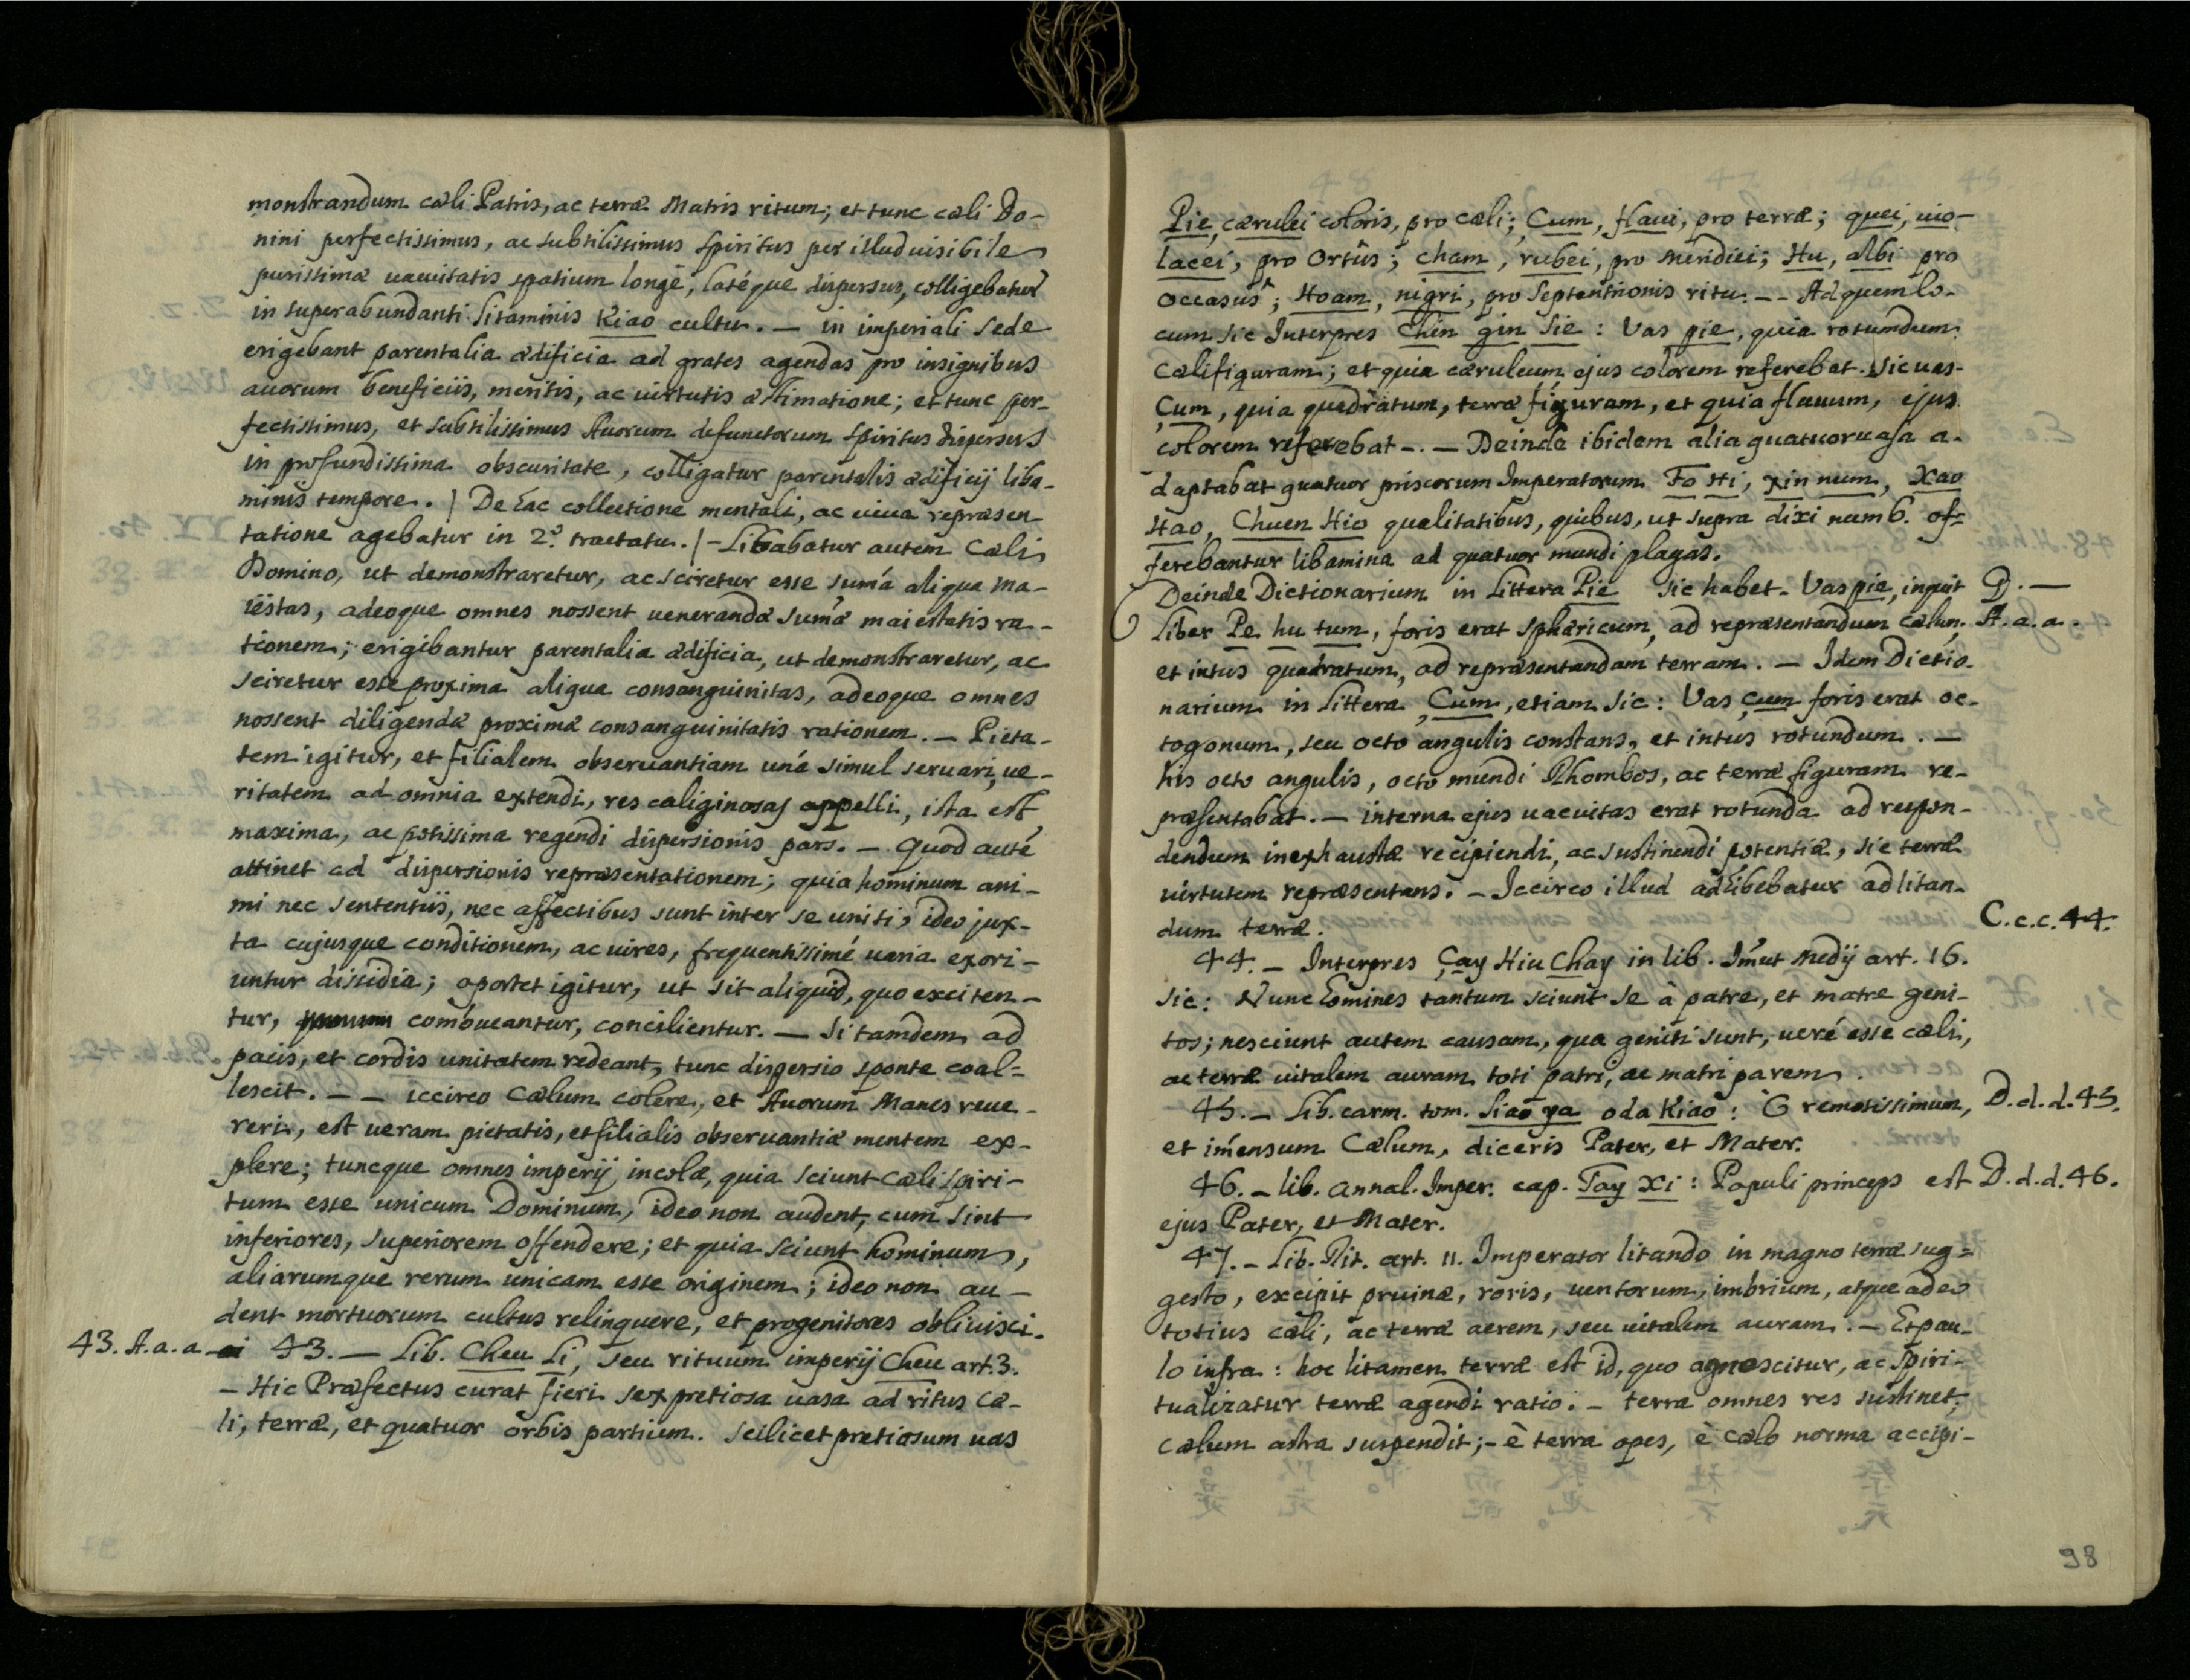 monstrandum cæli Patris, ac terræ Matris ritum; et tunc cæli Do-
nini perfectissimus, ac subtilissimus spiritus per illud uisibile
purissimæ uacuitatis spatium longè, latéque dispersus, colligebatur
in superabundanti litaminis Kiao cultu. — in imperiali sede
erigebant parentalia ædificia ad grates agendas pro insignibus
auorum beneficiis, meritis, ac uirtutis æstimatione; et tunc per-
fectissimus, et subtilissimus Auorum defunctorum spiritus dispersus
in profundissima obscuritate, colligatur parentalis ædificij liba-
minis tempore. / De hac collectione mentali, ac uiua repræsen-
tatione agebatur in 2.º tractatu. / - Libabatur autem Cæli
Domino, ut demonstraretur, ac sciretur esse sum̃a aliqua ma-
iestas, adeoque omnes nossent uenerandæ sum̃æ maiestatis ra-
tionem; erigibantur parentalia ædificia, ut demonstraretur, ac
sciretur esse proxima aliqua consanguinitas, adeoque omnes
nossent diligendæ proximæ consanguinitatis rationem. — Pieta-
tem igitur, et filialem obseruantiam unà simul seruari, ue-
ritatem ad omnia extendi, res caliginosas appelli, ista est
maxima, ac potissima regendi dispersionis pars. — Quod autẽ
attinet ad dispersionis repræsentationem; quia hominum ani-
mi nec sententiis, nec affectibus sunt inter se uniti, ideo jux-
ta cujusque conditionem, ac uires, frequentissimé uaria exori-
untur dissidia; oportet igitur, ut sit aliquid, quo exciten-
tur, comoueantur, concilientur. — Si tamdem ad
pacis, et cordis unitatem redeant, tunc dispersio sponte coal=
lescit. — — iccirco Cælum colere, et Auorum Manes reue-
reri, est ueram pietatis, et filialis obseruantiæ mentem ex-
plere; tuncque omnes imperij incolæ, quia sciunt cæli spiri-
tum esse unicum Dominum, ideo non audent, cum sint
inferiores, superiorem offendere; et quia sciunt hominum,
aliarumque rerum unicam esse originem; ideo non au-
dent mortuorum cultus relinquere, et progenitores obliuisci.
43. A.a.a. 43. — Lib. Cheu Li, seu rituum imperij Cheu art. 3.
— Hic Præfectus curat fieri sex pretiosa uasa ad ritus cæ-
li, terræ, et quatuor orbis partium. Scilicet pretiosum uas
Pie, cærulei coloris, pro cæli; Çum, flaui, pro terræ; quei, uio-
lacei, pro Ortûs; cham, rubei, pro Meridiei; Hu, albi pro
occasus; Hoam, nigri, pro Septentrionis ritu. — - Ad quem lo-
cum sic Interpres Chin gin Sie: Vas pie, quia rotumdum
Cæli figuram; et quia cæruleum ejus colorem referebat. Sic uas-
Çum, quia quadratum, terræ figuram, et quia flauum, ejus
colorem referebat -. — Deinde ibidem alia quatuor uasa a-
daptabat quatuor priscorum Imperatorum Fo Hi, xin num, Xao
Hao, Chuen Hio qualitatibus, quibus, ut supra dixi num 6. of=
ferebantur libamina ad quatuor mundi plagas.
Deinde Dictionarium in littera Pie sic habet. Vas pie, inquit D. —
liber Pe hu tum, foris erat sphæricum, ad repræsentandum cælum. A.a.a.
et intus quadratum, ad repræsentandam terram. — Idem Dictio-
narium in littera Çum, etiam sic: Vas çum foris erat oc-
togonum, seu octo angulis constans, et intus rotundum. —
his octo angulis, octo mundi Rhombos, ac terræ figuram re-
præsentabat. — interna ejus uacuitas erat rotunda ad respon-
dendum inexhaustæ recipiendi, ac sustinendi potentiæ, sic terræ
uirtutem repræsentans. — Iccirco illud adhibebatur ad litan-
dum terræ. C.c.c. 44.
44. — Interpres Çay Hiu Chay in lib. Im̃ut Medij art. 16.
sic: Nunc homines tantum sciunt se à patre, et matre geni-
tos; nesciunt autem causam, qua geniti sunt, ueré esse cæli,
ac terræ uitalem auram toti patri, ac matri parem.
45. — Lib. carm. tom. Siao ya oda Kiao: O remotissimum, D.d.d. 45.
et im̃ensum Cælum, diceris Pater, et Mater.
46. — lib. annal. Imper. cap. Tay Xi: Populi princeps est D.d.d. 46.
ejus Pater, et Mater.
47. — Lib. Rit. art. 11. Imperator litando in magno terræ sug=
gesto, excipit pruinæ, roris, uentorum, imbrium, atque adeo
totius cæli, ac terræ aerem, seu uitalem auram. — Et pau-
lo infra: hoc litamen terræ est id, quo agnoscitur, ac spiri-
tualizatur terræ agendi ratio. — terra omnes res sustinet,
cælum astra suspendit; - è terra opes, è cælo norma accipi-
98